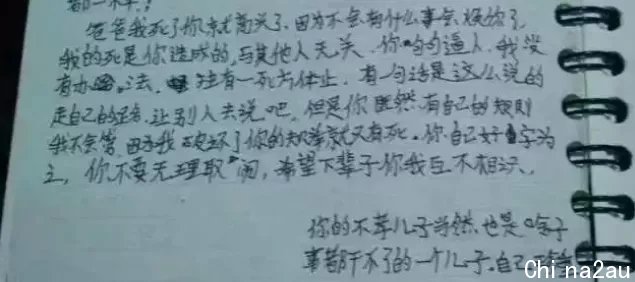 爸爸我死了你就高兴了.因为不会有什么事会烦你了.
我的死是你造成的,与其他人无关.你句句逼人.我没
有办法.独有一死方休止.有一句话是这么说的
走自己的路,让别人去说吧.但是你既然有自己的规则
我不会管.因为我破坏了你的规律就又有死.你自己好自为
之,你不要无理取闹,希望下辈子你我互不相识.
你的不孝儿子当然也是啥子
事都干不了的一个儿子.自己
Chi na2au